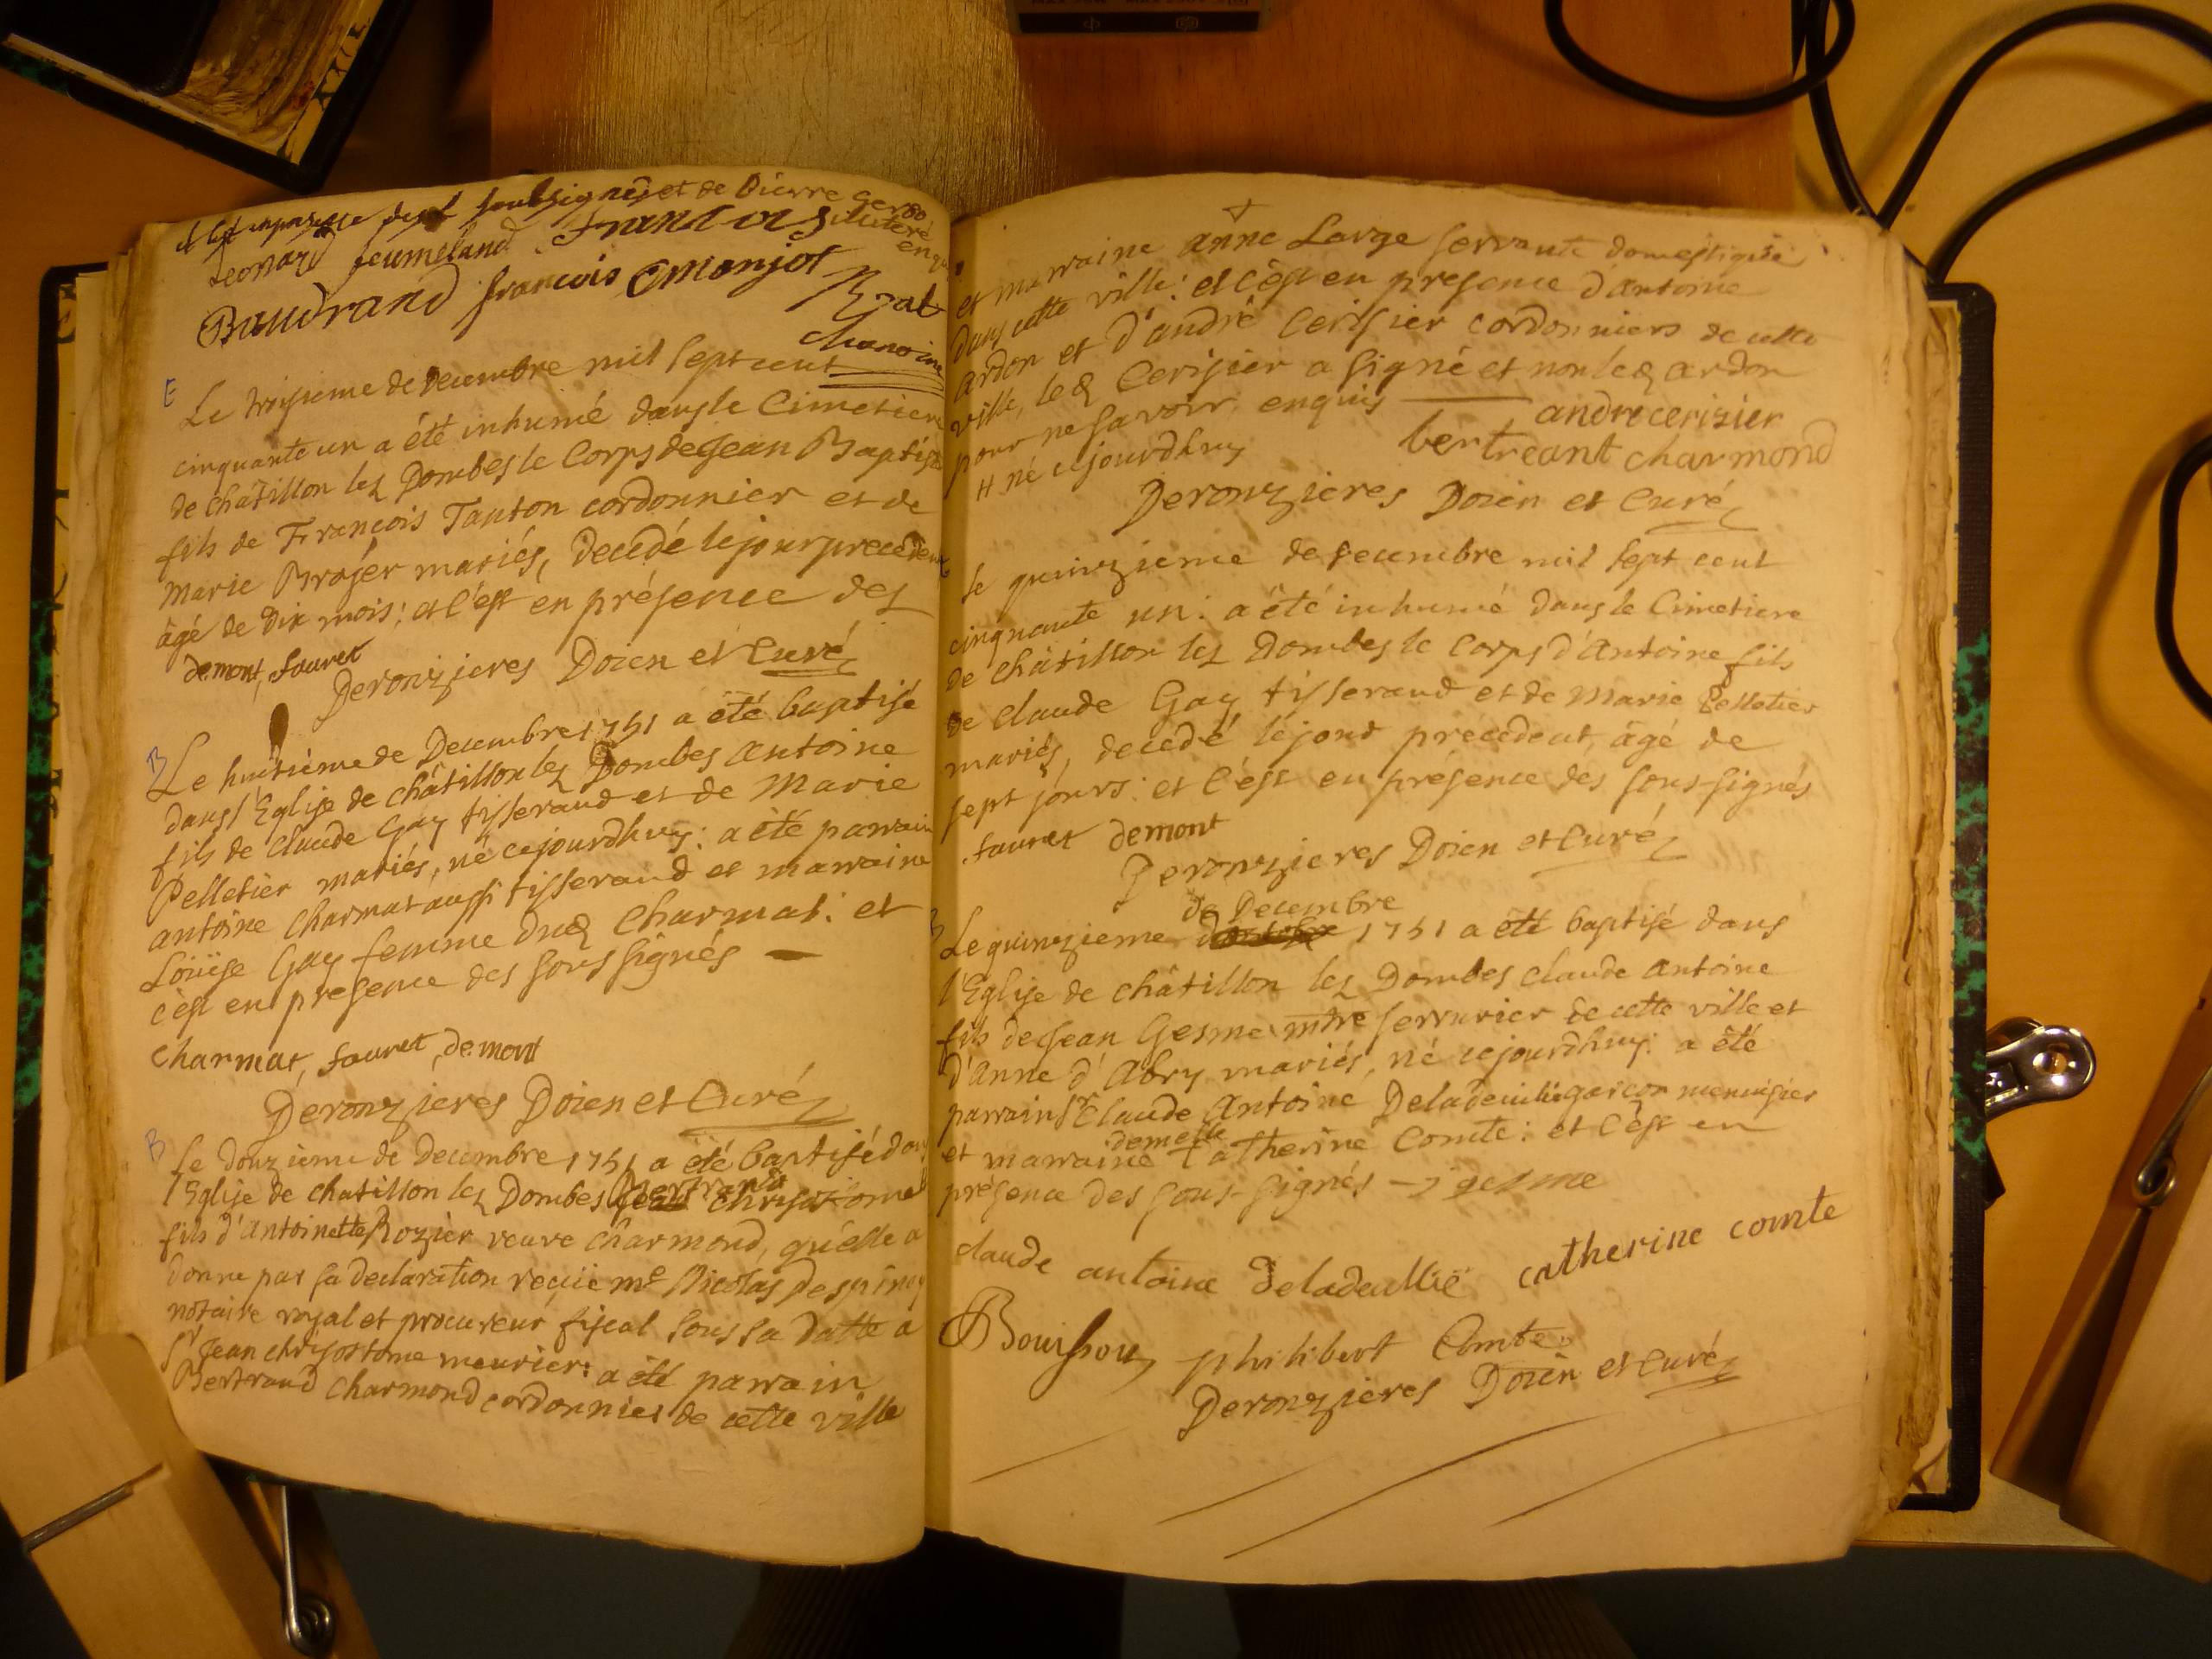 et de Pierre
leonard jeumeland francois
Baudrand francois Monjot
Bzat
chanoine
E
Le troisieme de decembre mil sept cent
cinquante un a été inhumé dans le Cimetiere
de châtillon lez Dombes le Corps de Jean Baptiste
fils de François Tanton cordonnier et de
Marie Brojér mariés, decedé le jour precedent
âgé de dix mois; et c'est en présence des
demont, fauret
Deronzieres Doien et Curé
B
Le huitiéme de Decembre 1751 a été baptisé
dans l'Eglise de châtillon lez Dombes antoine
fils de claude Gay tisserand et de Marie
Pelletier mariés, né cejourdhuy: a été parrain
antoine Charmat aussi tisserand et marraine
Loüise Gay femme dud Charmat: et
c'est en presence des sous signés
Charmat, fauret, demont
Deronzieres Doien et Curé
B
Le douzieme de decembre 1751 a été baptisé dans
l'Eglise de chatillon lez Dombes Bertrand chrisostome
fils d'antoinette Rozier veuve charmond, qu'elle a
donné par sa declaration reçüe me Nicolas Despiney
notaire royal et procureur fiscal sous sa datte a
sr Jean chrisostome meurier: a été parrain
Bertrand Charmond cordonnier de cette ville
et marraine anne Large servante domestique
dans cette ville: et c'est en presence d'antoine
ardon et d'andré Cerisier cordonniers de cette
ville, led Cerisier a signé et non led ardon
pour ne savoir enquis
andre cerisier
# né cejourdhuy
bertreant charmond
Deronzieres Doien et Curé
Le quinzieme de decembre mil sept cent
cinquante un: a été inhumé dans le Cimetiere
de châtillon lez Dombes le Corps d'antoine fils
de claude Gay tisserand et de Marie Pelletier
mariés, decedé le jour précédent, âgé de
sept jours: et c'est en présence des sous-signés
fauret demont
Deronzieres Doien et Curé
B
de Decembre
Le quinzieme 1751 a été baptisé dans
l'Eglise de châtillon lez Dombes claude antoine
fils de Jean Gesme mtre serrurier de cette ville et
d'anne d'Abry mariés, né cejourdhuy: a été
parrain sr Claude Antoine Deladeuilie garçon menuisier
demelle
et marraine Catherine Comte: et c'est en
présence des sous-signés j gesme
claude antoine deladeullie catherine comte
Bouisson philibert Comte
Deronzieres Doien et Curé